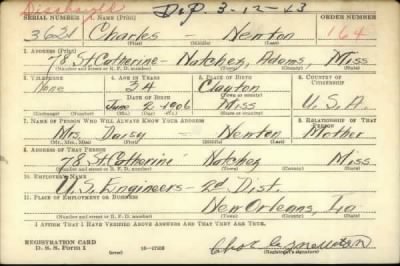 Discharged DiP 3-12-43
SERIAL NUMBER 1. NAME (Print) ORDER NUMBER
3621 Charles - Newton 164
(First) (Middle) (Last)
2. ADDRESS (Print)
78 St Catherine - Natchez, Adams, Miss
(Number and street or R. F. D. number) (Town) (County) (State)
3. TELEPHONE 4. AGE IN YEARS 5. PLACE OF BIRTH 6. COUNTRY OF CITIZENSHIP
None 34 Clayton
DATE OF BIRTH (Town or county)
June 2-1906 Miss U.S.A.
(Exchange) (Number) (Mo.) (Day) (Yr.) (State or country)
7. NAME OF PERSON WHO WILL ALWAYS KNOW YOUR ADDRESS 8. RELATIONSHIP OF THAT PERSON
Mrs. Daisy - Newton Mother
(Mr., Mrs., Miss) (First) (Middle) (Last)
9. ADDRESS OF THAT PERSON
78 St Catherine Natchez Miss.
(Number and street or R. F. D. number) (Town) (County) (State)
10. EMPLOYER'S NAME
U.S. Engineers - 2d Dist.
11. PLACE OF EMPLOYMENT OR BUSINESS
New Orleans, La
(Number and street or R. F. D. number) (Town) (County) (State)
I AFFIRM THAT I HAVE VERIFIED ABOVE ANSWERS AND THAT THEY ARE TRUE.
REGISTRATION CARD
D. S. S. Form 1 (over) 16-17105 (Registrant's signature)